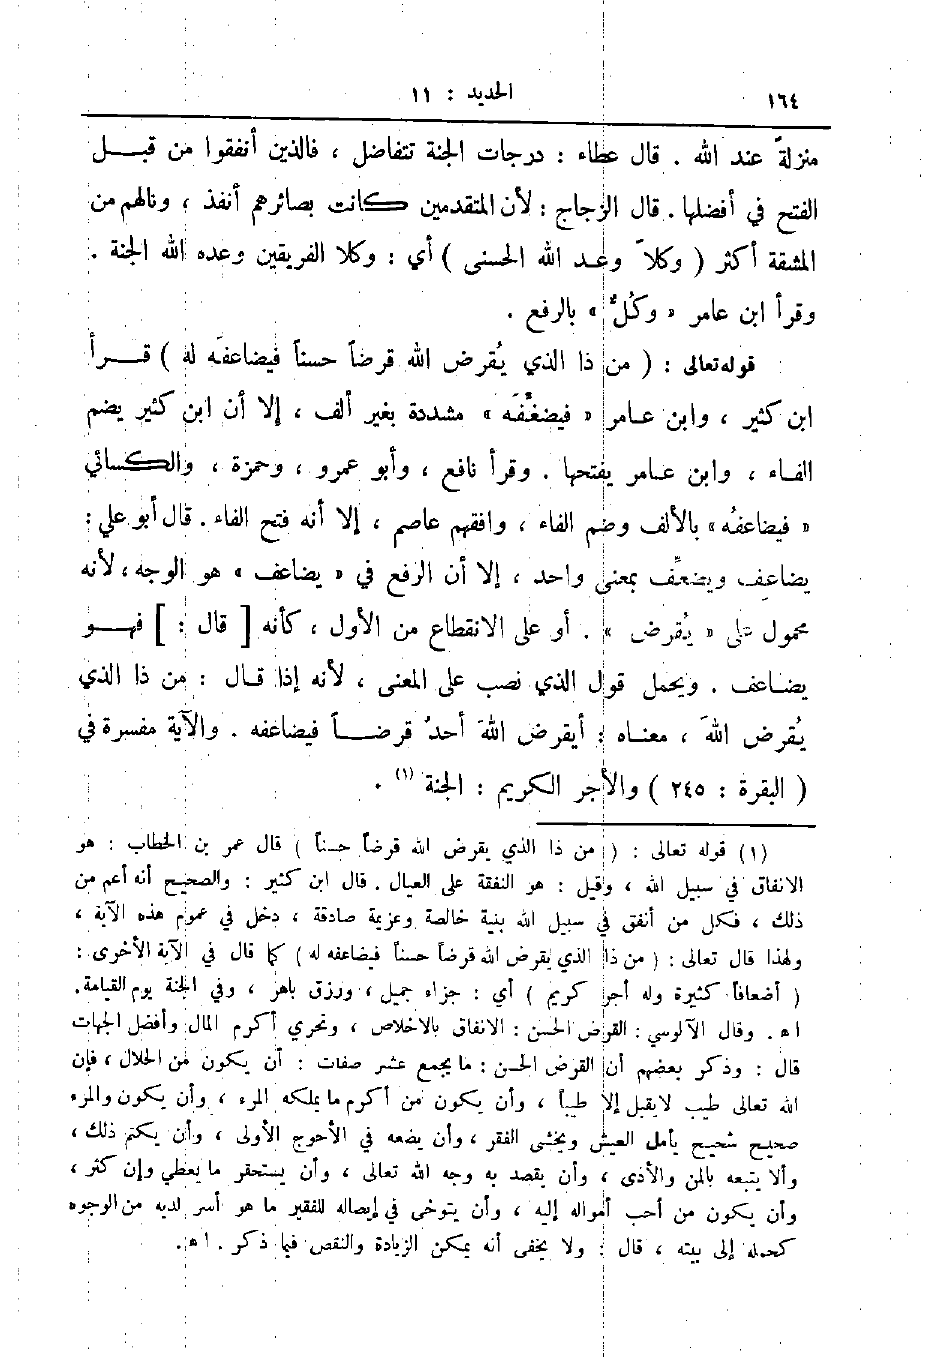 ١٦٤
الحديد : ١١
منزلةً عند الله . قال عطاء : درجات الجنة تتفاضل ، فالذين أنفقوا من قبل
الفتح في أفضلها . قال الزجاج : لأن المتقدمين كانت بصائرهم أنفذ ، ونالهم من
المشقة أكثر ( وكلاً وعد الله الحسنى ) أي : وكلا الفريقين وعده الله الجنة .
وقرأ ابن عامر « وكُلٌّ » بالرفع .
قوله تعالى : ( من ذا الذي يُقرض الله قرضاً حسناً فيضاعفَه له ) قرأ
ابن كثير ، وابن عامر « فيضعِّفَه » مشددة بغير ألف ، إلا أن ابن كثير يضم
الفاء ، وابن عامر يفتحها . وقرأ نافع ، وأبو عمرو ، وحمزة ، والكسائي
« فيضاعفُه » بالألف وضم الفاء ، وافقهم عاصم ، إلا أنه فتح الفاء . قال أبو علي :
يضاعِف ويضعِّف بمعنى واحد ، إلا أن الرفع في « يضاعف » هو الوجه ، لأنه
محمول على « يُقرض » . أو على الانقطاع من الأول ، كأنه [ قال : ] فهو
يضاعف . ويحمل قول الذي نصب على المعنى ، لأنه إذا قال : من ذا الذي
يُقرض اللهَ ، معناه : أيقرض اللهَ أحدٌ قرضاً فيضاعفه . والآية مفسرة في
( البقرة : ٢٤٥ ) والأجر الكريم : الجنة (١) .
(١) قوله تعالى : ( من ذا الذي يقرض الله قرضاً حسناً ) قال عمر بن الخطاب : هو
الانفاق في سبيل الله ، وقيل : هو النفقة على العيال . قال ابن كثير : والصحيح أنه أعم من
ذلك ، فكل من أنفق في سبيل الله بنية خالصة وعزيمة صادقة ، دخل في عموم هذه الآية ،
ولهذا قال تعالى : ( من ذا الذي يقرض الله قرضاً حسناً فيضاعفه له ) كما قال في الآية الأخرى :
( أضعافاً كثيرة وله أجر كريم ) أي : جزاء جميل ، ورزق باهر ، وفي الجنة يوم القيامة .
ا ه . وقال الآلوسي : القرض الحسن : الانفاق بالاخلاص ، وتحري أكرم المال وأفضل الجهات
قال : وذكر بعضهم أن القرض الحسن : ما يجمع عشر صفات : أن يكون من الحلال ، فإن
الله تعالى طيب لايقبل إلا طيباً ، وأن يكون من أكرم ما يملكه المرء ، وأن يكون والمرء
صحيح شحيح يأمل العيش ويخشى الفقر ، وأن يضعه في الأحوج الأولى ، وأن يكتم ذلك ،
وألا يتبعه بالمن والأذى ، وأن يقصد به وجه الله تعالى ، وأن يستحقر ما يعطي وإن كثر ،
وأن يكون من أحب أمواله إليه ، وأن يتوخى في إيصاله للفقير ما هو أسر لديه من الوجوه
كحمله إلى بيته ، قال : ولا يخفى أنه يمكن الزيادة والنقص فيما ذكر . ا ه .